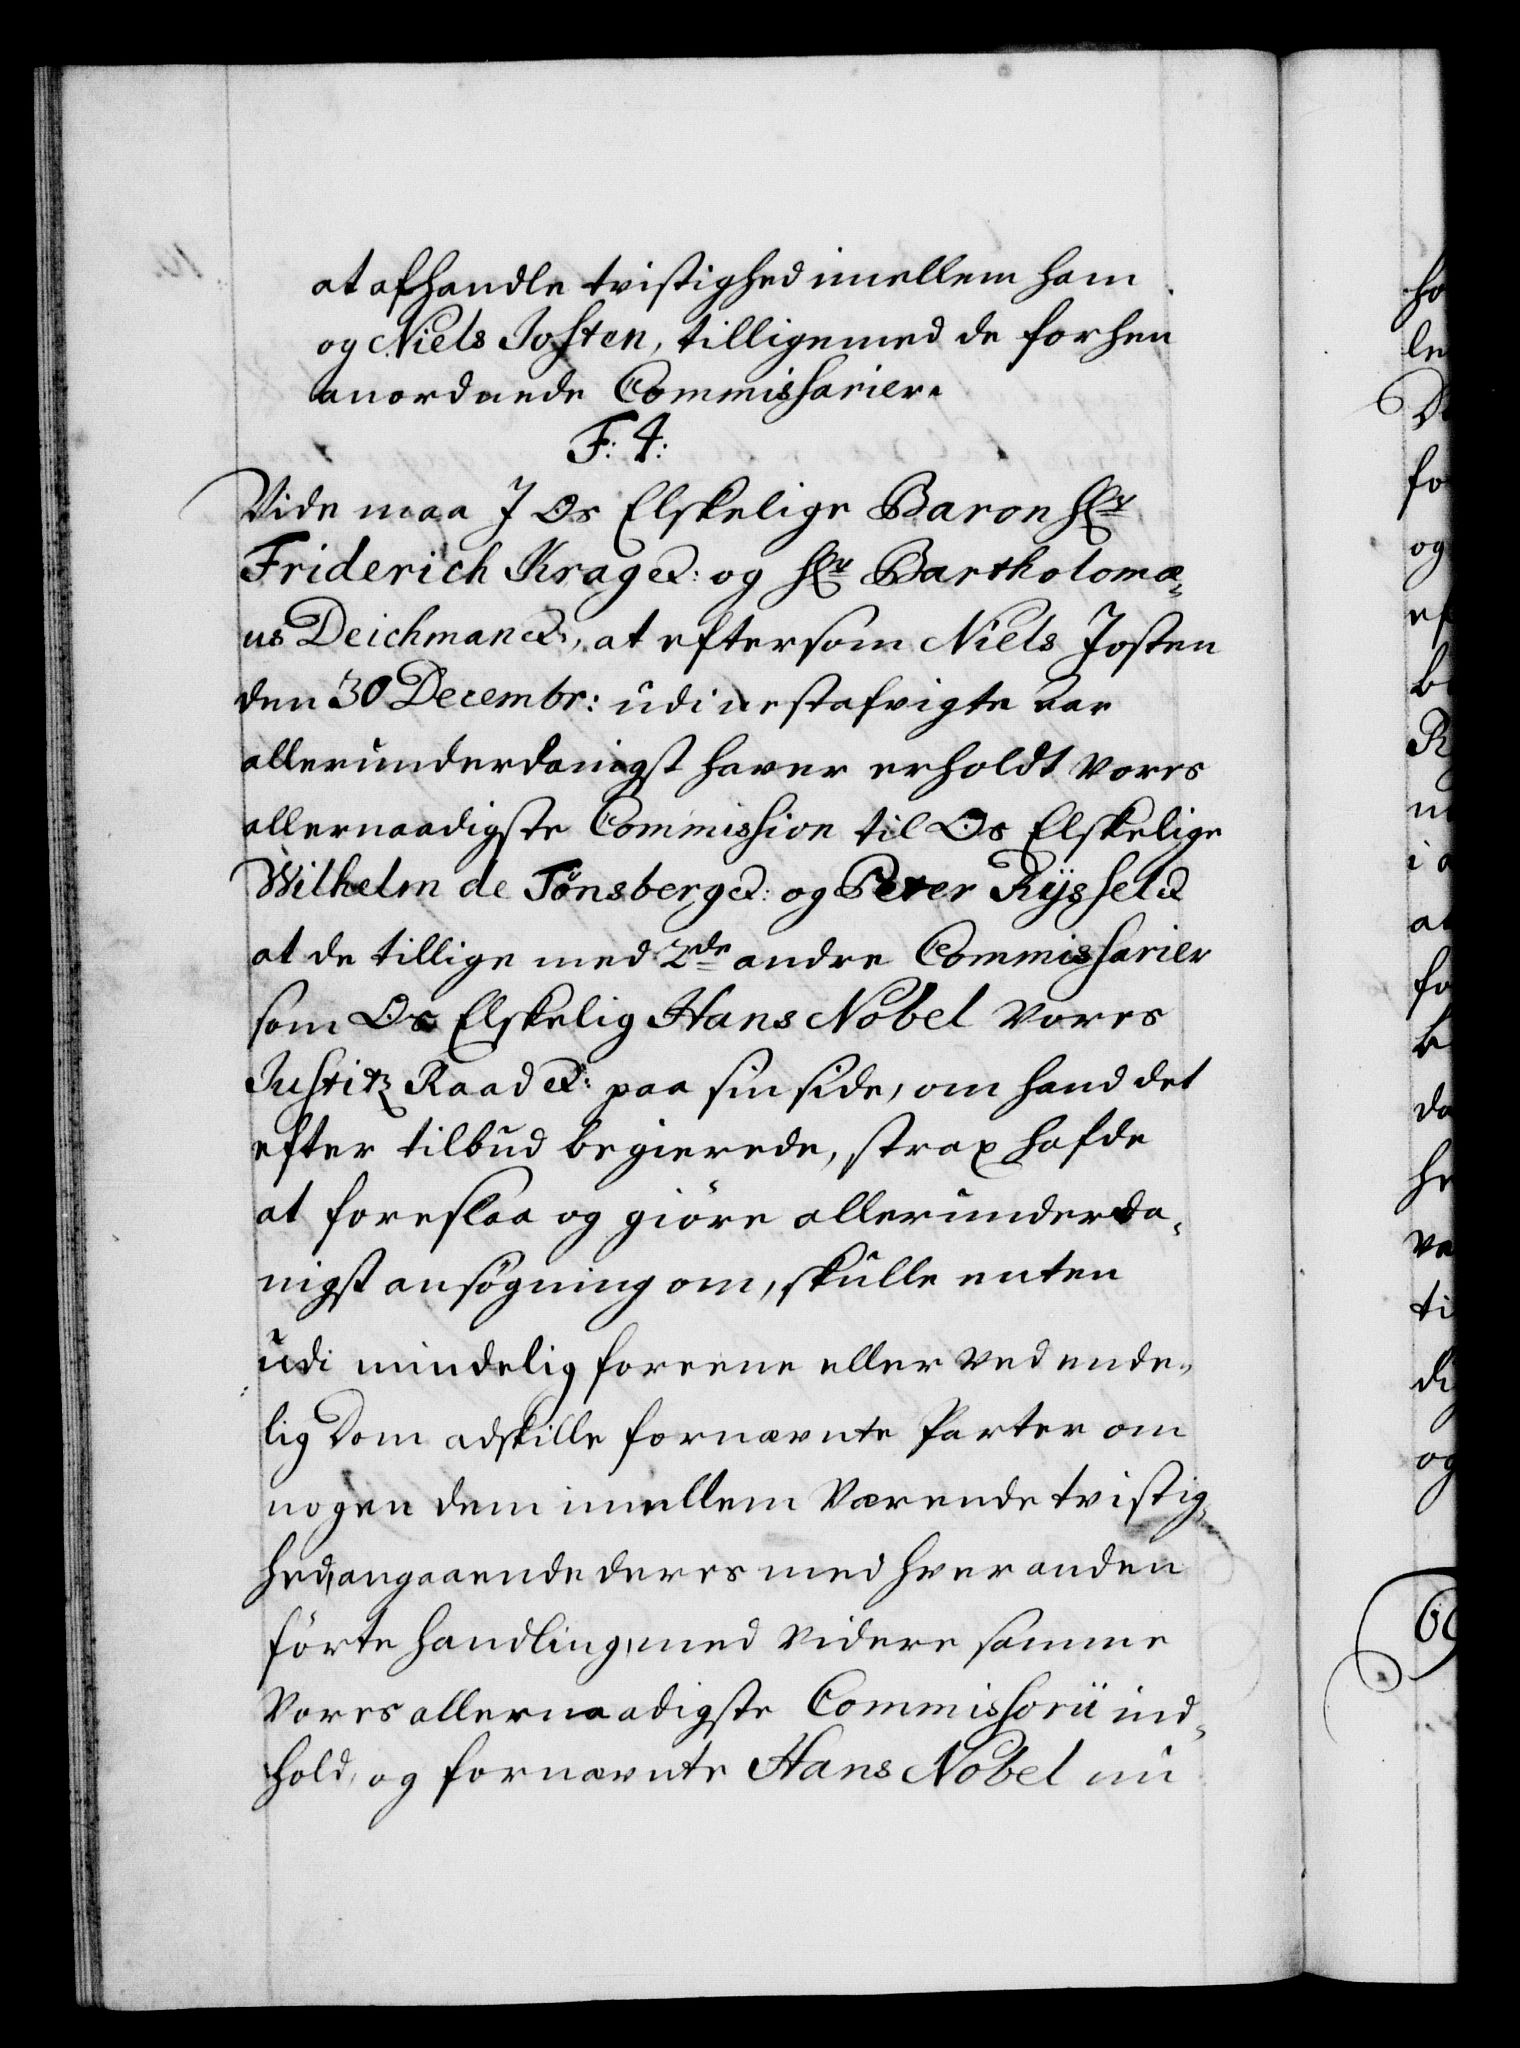 at afhandle tvistighed imellem ham
og Niels Josten, tilligemed de forhen
anordnede Commissarier.
F: 4:
Vide maa J Os Elskelige Baron Hr
Friderich Krag &: og Hr Bartholomæ-
us Deichman &:, at eftersom Niels Josten
den 30 Decembr: udi nestafvigte aar
allerunderdanigst haver erholdt vores
allernaadigste Commission til Os Elskelige
Wilhelm de Tönsberg &: og Peter Rÿssel &
at de tillige med 2de andre Commissarier
som Os Elskelig Hans Nobel Vores
Justitz Raad &: paa sin side, om hand det
efter tilbud begierede, strax hafde
at foreslaa og giöre allerunderda-
nigst ansögning om, skulle enten
udi mindelig foreene eller ved ende-
lig Dom adskille fornævnte Parter om
nogen dem imellem Værende tvistig-
hed, angaaende deres med hver anden
förte handling, med videre samme
Vores allernaadigste Commissorii ind-
hold, og fornævnte Hans Nobel nu